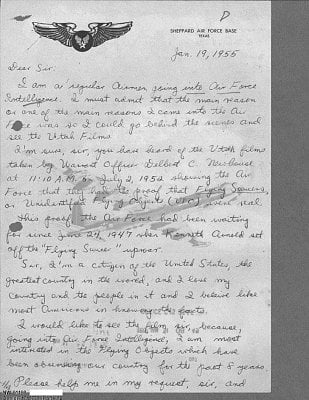 P
SHEPPARD AIR FORCE BASE
TEXAS
Jan. 19, 1955
Dear Sir,
I am a regular Airmen going into Air Force
Intelligence. I must admit that the main reason
or one of the main reasons I came into the Air
Force was so I could go behind the scenes and
see the Utah Films.
I'm sure, sir, you have heard of the Utah films
taken by Warrant Officer Delbert C. Newhouse
at 11:10 A.M. on July 2, 1952 showing the Air
Force that they had the proof that Flying Saucers,
or Unidentified Flying Objects (UFO) were real.
This proof the Air Force had been waiting
for since June 24, 1947 when Kenneth Arnold set
off the "Flying Saucer" uproar.
Sir, I'm a citizen of the United States, the
greatest country in the world, and I love my
country and the people in it and I beleive like
most Americans in knowing the facts.
I would like to see the film, sir, because,
going into Air Force Intelligence, I am most
interested in the Flying Objects which have
been observing our country for the past 8 years.
Please help me in my request, sir, and